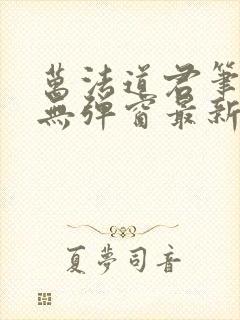 萬法道君筆
無彈窗最新
夏夢司音